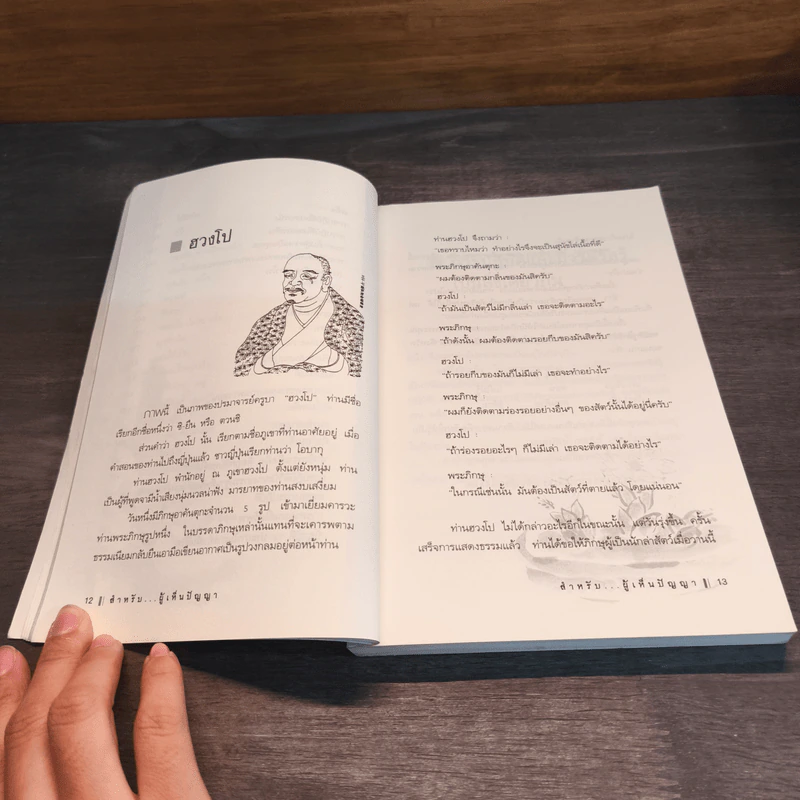 ฮวงโป
ภาพนี้ เป็นภาพของปรมาจารย์ครูบา "ฮวงโป" ท่านมีชื่อ
เรียกอีกชื่อหนึ่งว่า ซิ-ยืน หรือ ตวนซิ
ส่วนคำว่า ฮวงโป นั้น เรียกตามชื่อภูเขาที่ท่านอาศัยอยู่ เมื่อ
คำสอนของท่านไปถึงญี่ปุ่นแล้ว ชาวญี่ปุ่นเรียกท่านว่า โอบากุ
ท่านฮวงโป พำนักอยู่ ณ ภูเขาฮวงโป ตั้งแต่ยังหนุ่ม ท่าน
เป็นผู้ที่พูดจามีน้ำเสียงนุ่มนวลน่าฟัง มารยาทของท่านสงบเสงี่ยม
วันหนึ่งมีภิกษุอาคันตุกะจำนวน 5 รูป เข้ามาเยี่ยมคารวะ
ท่านพระภิกษุรูปหนึ่ง ในบรรดาภิกษุเหล่านั้นแทนที่จะเคารพตาม
ธรรมเนียมกลับยืนเอามือเขียนอากาศเป็นรูปวงกลมอยู่ต่อหน้าท่าน
12 สำหรับ...ผู้เห็นปัญญา
ท่านฮวงโป จึงถามว่า :
"เธอทราบไหมว่า ทำอย่างไรจึงจะเป็นสุนัขไล่เนื้อที่ดี"
พระภิกษุอาคันตุกะ :
"ผมต้องติดตามกลิ่นของมันสิครับ"
ฮวงโป :
"ถ้ามันเป็นสัตว์ไม่มีกลิ่นเล่า เธอจะติดตามอะไร"
พระภิกษุ :
"ถ้าดังนั้น ผมต้องติดตามรอยกีบของมันสิครับ"
ฮวงโป :
"ถ้ารอยกีบของมันก็ไม่มีเล่า เธอจะทำอย่างไร"
พระภิกษุ :
"ผมก็ยังติดตามร่องรอยอย่างอื่นๆ ของสัตว์นั้นได้อยู่นี่ครับ"
ฮวงโป :
"ถ้าร่องรอยอะไรๆ ก็ไม่มีเล่า เธอจะติดตามได้อย่างไร"
พระภิกษุ :
"ในกรณีเช่นนั้น มันต้องเป็นสัตว์ที่ตายแล้ว โดยแน่นอน"
ท่านฮวงโป ไม่ได้กล่าวอะไรอีกในขณะนั้น แต่วันรุ่งขึ้น ครั้น
เสร็จการแสดงธรรมแล้ว ท่านได้ขอให้ภิกษุผู้เป็นนักล่าสัตว์เมื่อวานนี้
สำหรับ...ผู้เห็นปัญญา 13